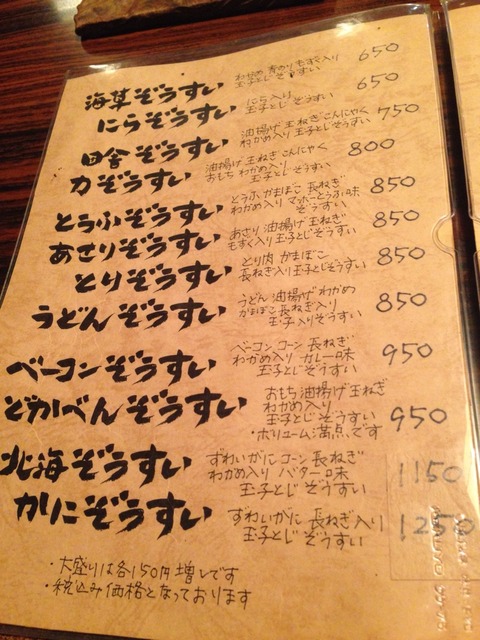 海草ぞうすい わかめ 青のりもずく入り 玉子とじぞうすい 650
にらぞうすい にら入り 玉子とじ ぞうすい 650
田舎ぞうすい 油揚げ 玉ねぎこんにゃく わかめ入り 玉子とじぞうすい 750
力ぞうすい 油揚げ 玉ねぎ こんにゃく おもち わかめ入り 玉子とじ ぞうすい 800
とうふぞうすい とうふ かまぼこ 長ねぎ わかめ入り マーボーとうふ味 ぞうすい 850
あさりぞうすい あさり 油揚げ 玉ねぎ もずく入り 玉子とじぞうすい 850
とりぞうすい とり肉 かまぼこ 長ねぎ入り 玉子とじぞうすい 850
うどんぞうすい うどん 油揚げ わかめ かまぼこ 長ねぎ入り 玉子入りぞうすい 850
ベーコンぞうすい ベーコン コーン 長ねぎ わかめ入り カレー味 玉子とじ ぞうすい 950
どかべんぞうすい おもち 油揚げ 玉ねぎ わかめ入り 玉子とじ ぞうすい ・ボリューム満点です 950
北海ぞうすい ずわいがに コーン 長ねぎ わかめ入り バター味 玉子とじ ぞうすい 1150
かにぞうすい ずわいがに 長ねぎ入り 玉子とじ ぞうすい 1250
・大盛りは各150円増しです
・税込み価格となっております